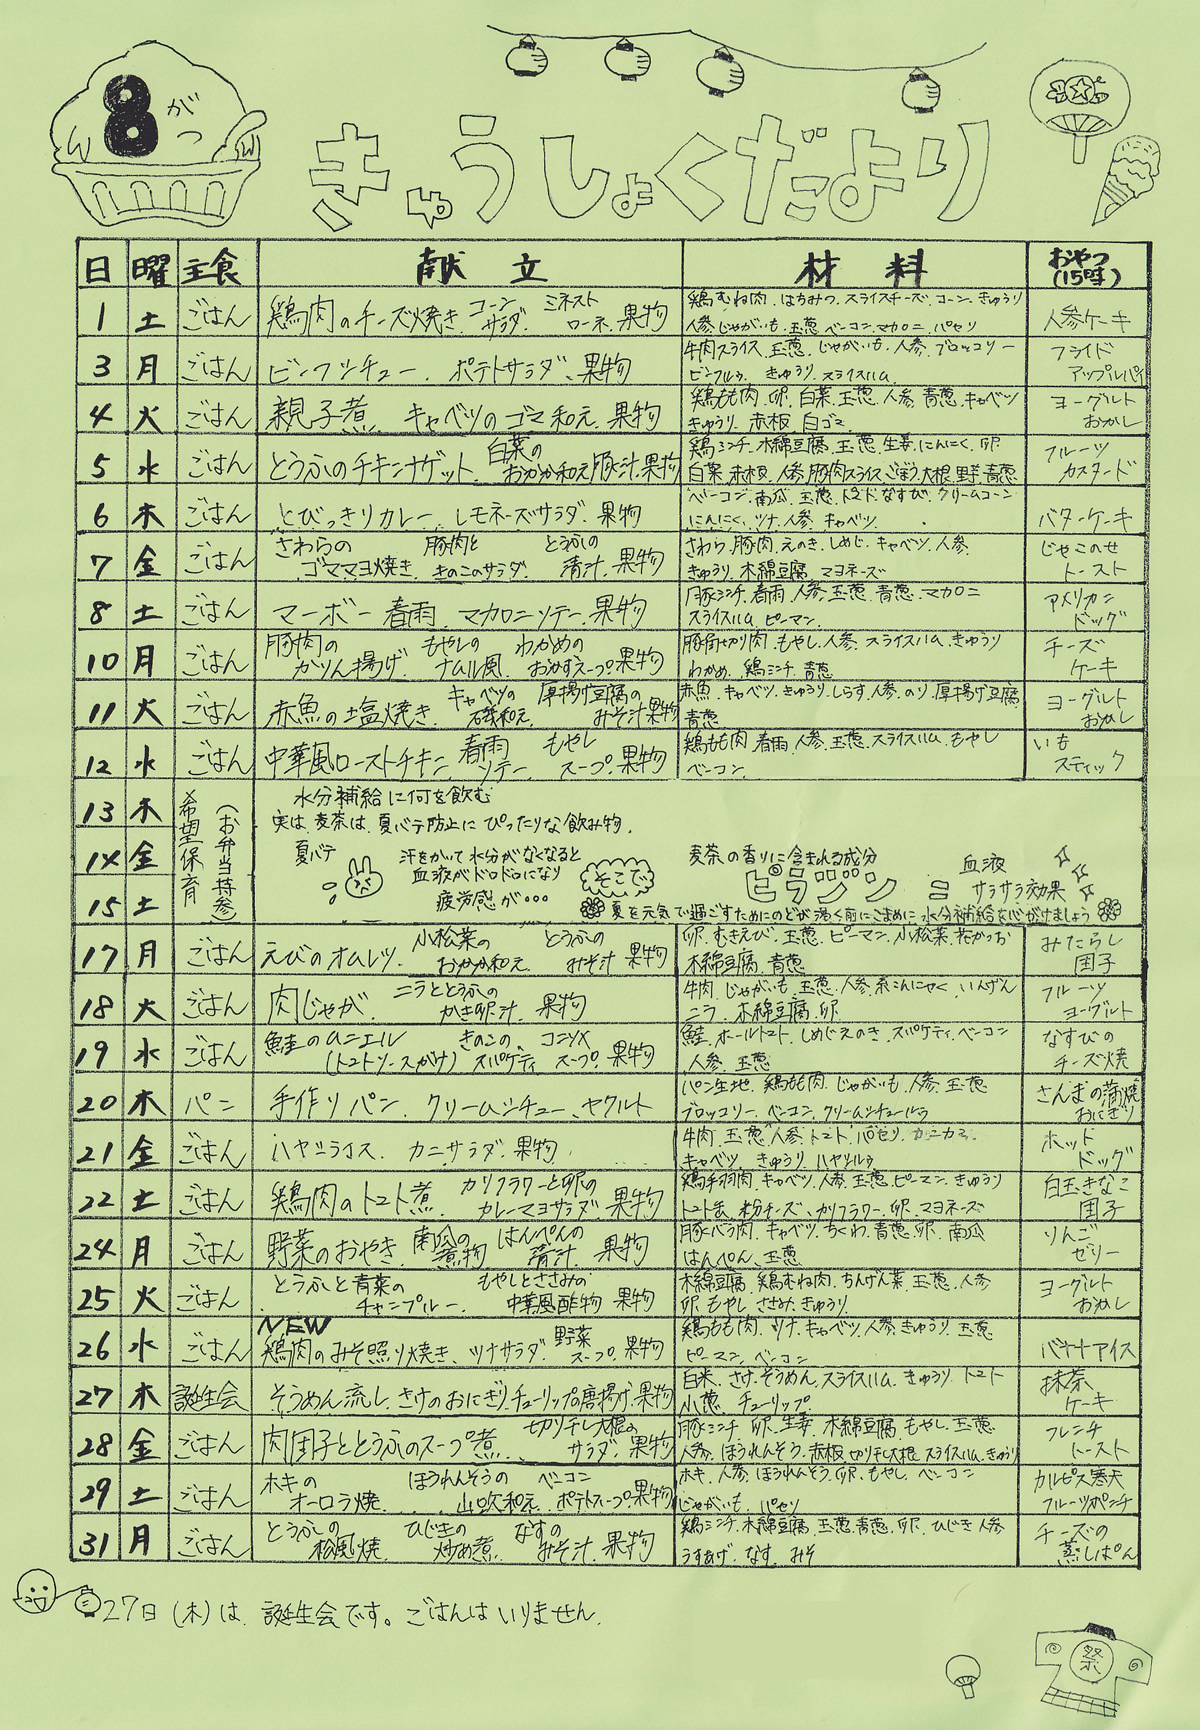 8がつ
きゅうしょくだより
日 曜 主食 献立 材料 おやつ(15時)
1 土 ごはん 鶏肉のチーズ焼き、コーンサラダ、ミネストローネ、果物 鶏むね肉、はちみつ、スライスチーズ、コーン、きゅうり
人参、じゃがいも、玉葱、ベーコン、マカロニ、パセリ 人参ケーキ
3 月 ごはん ビーフシチュー、ポテトサラダ、果物 牛肉スライス、玉葱、じゃがいも、人参、ブロッコリー
ビーフルゥ、きゅうり、スライスハム フライドアップルパイ
4 火 ごはん 親子煮、キャベツのゴマ和え、果物 鶏もも肉、卵、白菜、玉葱、人参、青葱、キャベツ
きゅうり、赤板、白ゴマ ヨーグルトおかし
5 水 ごはん とうふのチキンナゲット、白菜のおかか和え、豚汁、果物 鶏ミンチ、木綿豆腐、玉葱、生姜、にんにく、卵
白菜、赤板、人参、豚肉スライス、ごぼう、大根、里芋、青葱 フルーツカスタード
6 木 ごはん とびっきりカレー、レモネーズサラダ、果物 ベーコン、南瓜、玉葱、トマト、なすび、クリームコーン
にんにく、ツナ、人参、キャベツ バターケーキ
7 金 ごはん さわらのゴママヨ焼き、豚肉ときのこのサラダ、とうふの清汁、果物 さわら、豚肉、えのき、しめじ、キャベツ、人参
きゅうり、木綿豆腐、マヨネーズ じゃこのせトースト
8 土 ごはん マーボー春雨、マカロニソテー、果物 豚ミンチ、春雨、人参、玉葱、青葱、マカロニ
スライスハム、ピーマン アメリカンドッグ
10 月 ごはん 豚肉のガツん揚げ、もやしのナムル風、わかめのおかずスープ、果物 豚角切り肉、もやし、人参、スライスハム、きゅうり
わかめ、鶏ミンチ、青葱 チーズケーキ
11 火 ごはん 赤魚の塩焼き、キャベツの磯和え、厚揚げ豆腐のみそ汁、果物 赤魚、キャベツ、きゅうり、しらす、人参、のり、厚揚げ豆腐
青葱 ヨーグルトおかし
12 水 ごはん 中華風ローストチキン、春雨ソテー、もやしスープ、果物 鶏もも肉、春雨、人参、玉葱、スライスハム、もやし
ベーコン いもスティック
13 木
14 金
15 土
×希望保育
(お弁当持参)
水分補給に何を飲む
実は、麦茶は、夏バテ防止にぴったりな飲み物。
夏バテ
汗をかいて水分がなくなると
血液がドロドロになり
疲労感が・・・
そこで
麦茶の香りに含まれる成分
ピラジン = 血液サラサラ効果
夏を元気で過ごすためにのどが渇く前にこまめに水分補給を心がけましょう
17 月 ごはん えびのオムレツ、小松菜のおかか和え、とうふのみそ汁、果物 卵、むきえび、玉葱、ピーマン、小松菜、花かつお
木綿豆腐、青葱 みたらし団子
18 火 ごはん 肉じゃが、ニラととうふのかき卵汁、果物 牛肉、じゃがいも、玉葱、人参、糸こんにゃく、いんげん
ニラ、木綿豆腐、卵 フルーツヨーグルト
19 水 ごはん 鮭のムニエル(トマトソースがけ)、きのこのスパゲティ、コンソメスープ、果物 鮭、ホールトマト、しめじ、えのき、スパゲティ、ベーコン
人参、玉葱 なすびのチーズ焼
20 木 パン 手作りパン、クリームシチュー、ヤクルト パン生地、鶏もも肉、じゃがいも、人参、玉葱
ブロッコリー、ベーコン、クリームシチュールゥ さんまの蒲焼おにぎり
21 金 ごはん ハヤシライス、カニサラダ、果物 牛肉、玉葱、人参、トマト、パセリ、カニカマ
キャベツ、きゅうり、ハヤシルゥ ホットドッグ
22 土 ごはん 鶏肉のトマト煮、カリフラワーと卵のカレーマヨサラダ、果物 鶏手羽肉、キャベツ、人参、玉葱、ピーマン、きゅうり
トマト缶、粉チーズ、カリフラワー、卵、マヨネーズ 白玉きなこ団子
24 月 ごはん 野菜のおやき、南瓜の煮物、はんぺんの清汁、果物 豚バラ肉、キャベツ、ちくわ、青葱、卵、南瓜
はんぺん、玉葱 りんごゼリー
25 火 ごはん とうふと青菜のチャンプルー、もやしとささみの中華風酢物、果物 木綿豆腐、鶏むね肉、ちんげん菜、玉葱、人参
卵、もやし、ささみ、きゅうり ヨーグルトおかし
26 水 ごはん NEW 鶏肉のみそ照り焼き、ツナサラダ、野菜スープ、果物 鶏もも肉、ツナ、キャベツ、人参、きゅうり、玉葱
ピーマン、ベーコン バナナアイス
27 木 誕生会 そうめん流し、さけのおにぎり、チューリップの唐揚げ、果物 白米、さけ、そうめん、スライスハム、きゅうり、トマト
小葱、チューリップ 抹茶ケーキ
28 金 ごはん 肉団子ととうふのスープ煮、切り干し大根のサラダ、果物 豚ミンチ、卵、生姜、木綿豆腐、もやし、玉葱
人参、ほうれんそう、赤板、切り干し大根、スライスハム、きゅうり フレンチトースト
29 土 ごはん ホキのオーロラ焼、ほうれんそうの山吹和え、ベーコンポテトスープ、果物 ホキ、人参、ほうれんそう、卵、もやし、ベーコン
じゃがいも、パセリ カルピス寒天フルーツポンチ
31 月 ごはん とうふの松風焼、ひじきの炒め煮、なすのみそ汁、果物 鶏ミンチ、木綿豆腐、玉葱、青葱、卵、ひじき、人参
うすあげ、なす、みそ チーズの蒸しぱん
27日(木)は、誕生会です。ごはんはいりません。
祭